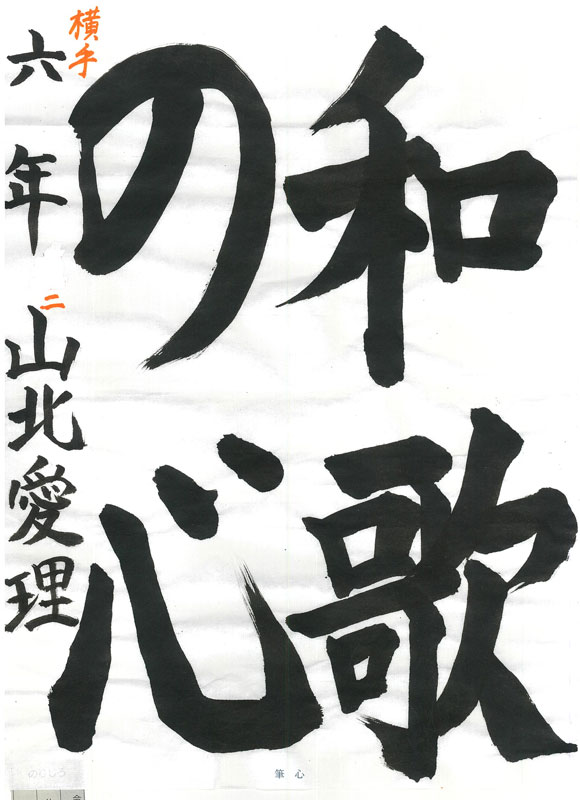 和歌
の心
横手
六年 山北愛理
二
筆心